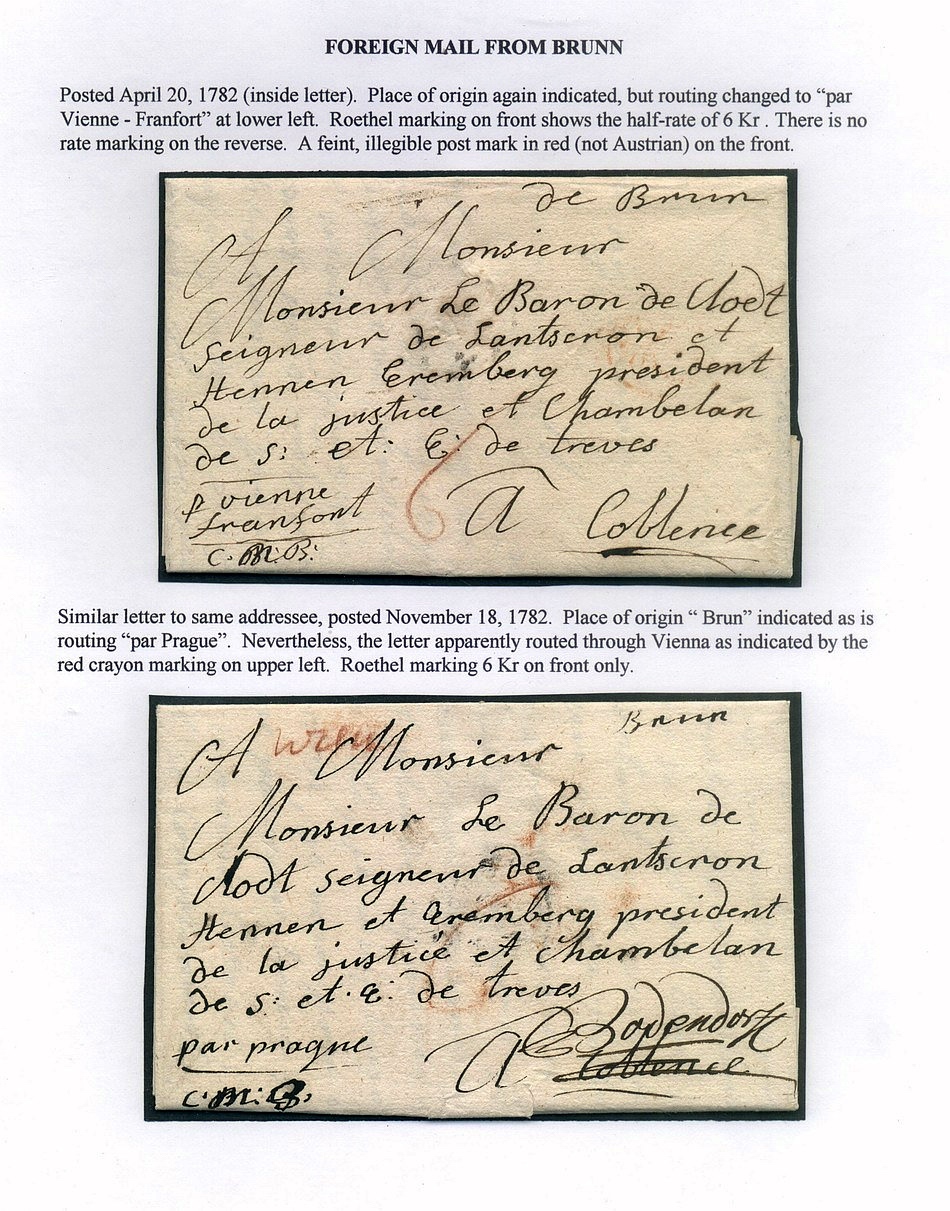 FOREIGN MAIL FROM BRUNN
Posted April 20, 1782 (inside letter). Place of origin again indicated, but routing changed to “par
Vienne - Franfort” at lower left. Roethel marking on front shows the half-rate of 6 Kr . There is no
rate marking on the reverse. A feint, illegible post mark in red (not Austrian) on the front.
de Brun
A Monsieur
Monsieur Le Baron de Clodt
seigneur de Lantscron et
Hennen Eremberg president
de la justice et Chambelan
de s: et: E: de treves
p vienne
franfort
6
A Coblence
C: M: B:
Similar letter to same addressee, posted November 18, 1782. Place of origin “ Brun” indicated as is
routing “par Prague”. Nevertheless, the letter apparently routed through Vienna as indicated by the
red crayon marking on upper left. Roethel marking 6 Kr on front only.
Brun
A Monsieur
Monsieur Le Baron de
Clodt seigneur de Lantscron
Hennen et Eremberg president
de la justice et Chambelan
de s: et: E: de treves
par prague
A
Coblence
C: M: B: